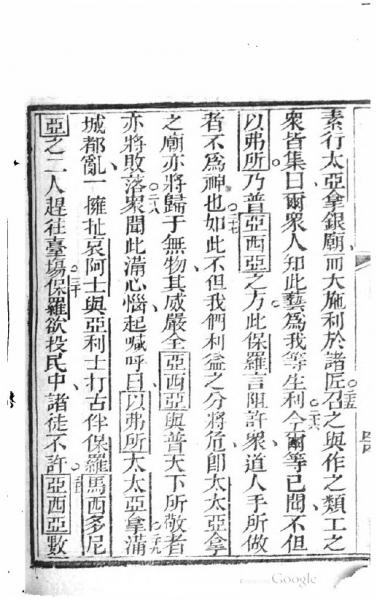 素行太亞拿銀廟而大施利於諸匠召之與作之類工之
衆皆集曰爾衆人知此藝爲我等生利今爾等已聞不但
以弗所乃普亞西亞之方此保羅言阻許衆道人手所做
者不爲神也如此不但我們利益之分將危卽太太亞拿
之廟亦將歸于無物其威嚴全亞西亞與普天下所敬者
亦將敗落衆聞此滿心惱起喊呼曰以弗所太太亞拿滿
城都亂一擁扯哀阿士與亞利士打古伴保羅馬西多尼
亞之二人趕往臺塲保羅欲投民中諸徒不許亞西亞數
Google